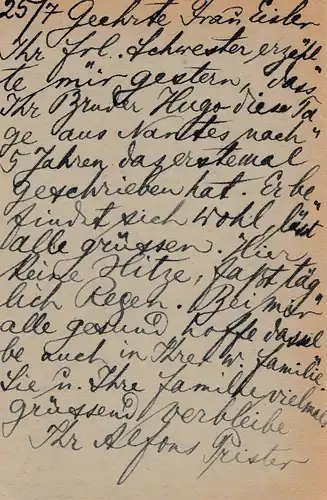 25/7 Geehrte Frau Eisler
Ihr Frl. Schwester erzähl-
te mir gestern, dass
Ihr Bruder Hugo diese Ta-
ge aus Nantes nach
5 Jahren das erstemal
geschrieben hat. Er be-
findet sich wohl, lässt
alle grüssen. Hier
keine Hitze, fasst täg-
lich Regen. Bei mir
alle gesund hoffe dassel-
be auch in Ihrer w. Familie
Sie u. Ihre Familie vielmals
grüssend verbleibe
Ihr Alfons Prister